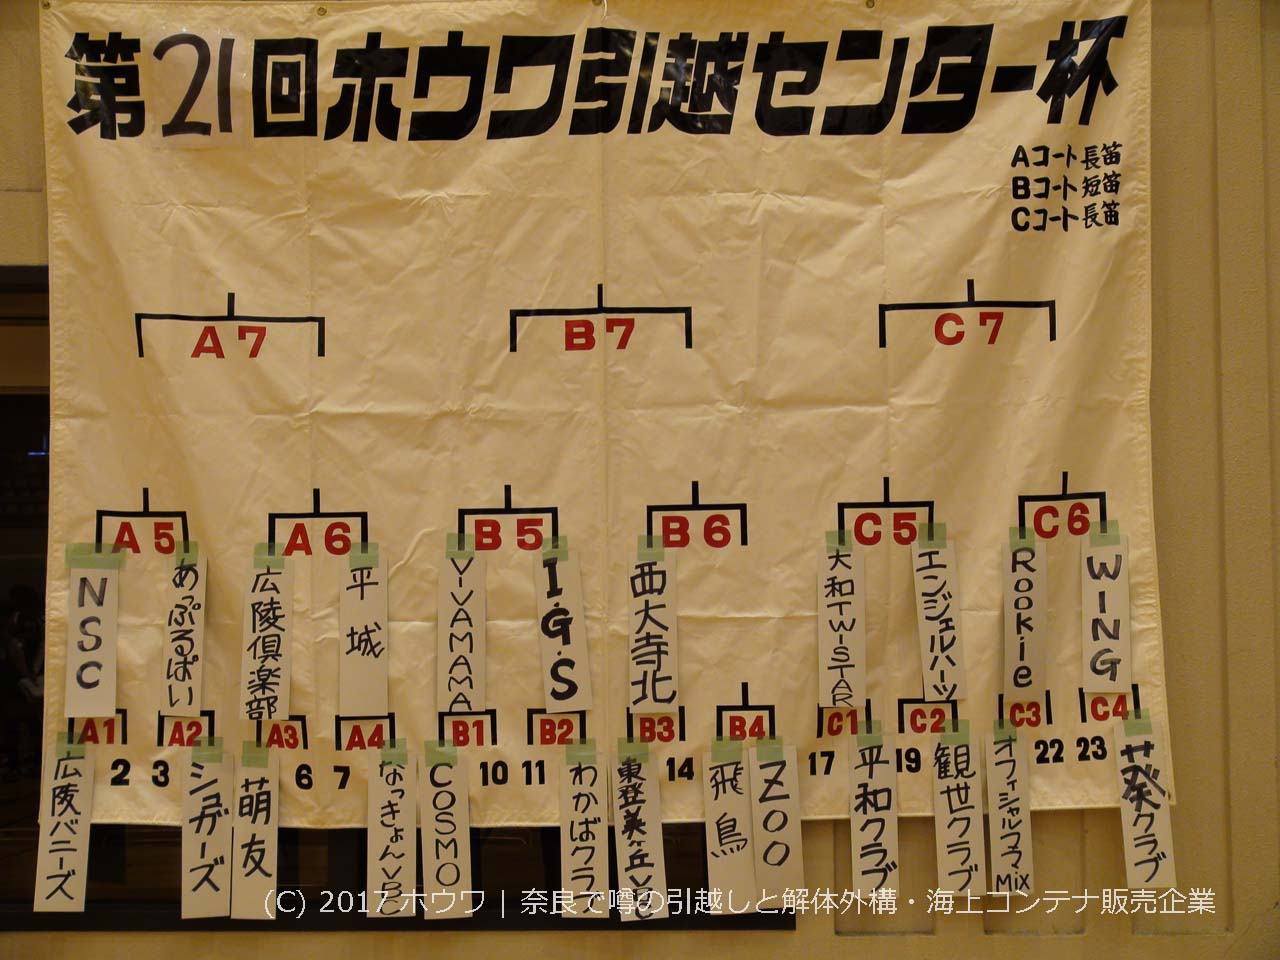 第21回ホウワ引越センター杯
Aコート長笛
Bコート短笛
Cコート長笛
A7
B7
C7
A5
A6
B5
B6
C5
C6
NSC
あっぷるぱい
広陵倶楽部
平城
V-VAMAMA
I.G.S
西大寺北
大和TWI-STAR
エンジェルハーツ
Rookie
WING
A1
A2
A3
A4
B1
B2
B3
B4
C1
C2
C3
C4
広陵バニーズ
2
3
シュガーズ
萌友
6
7
なっきょんVBC
COSMO
10
11
わかばクラブ
東登美ヶ丘VC
14
飛鳥
ZOO
17
平和クラブ
19
観世クラブ
オフィシャルママMIX
22
23
葵クラブ
(C) 2017 ホウワ | 奈良で噂の引越しと解体外構・海上コンテナ販売企業